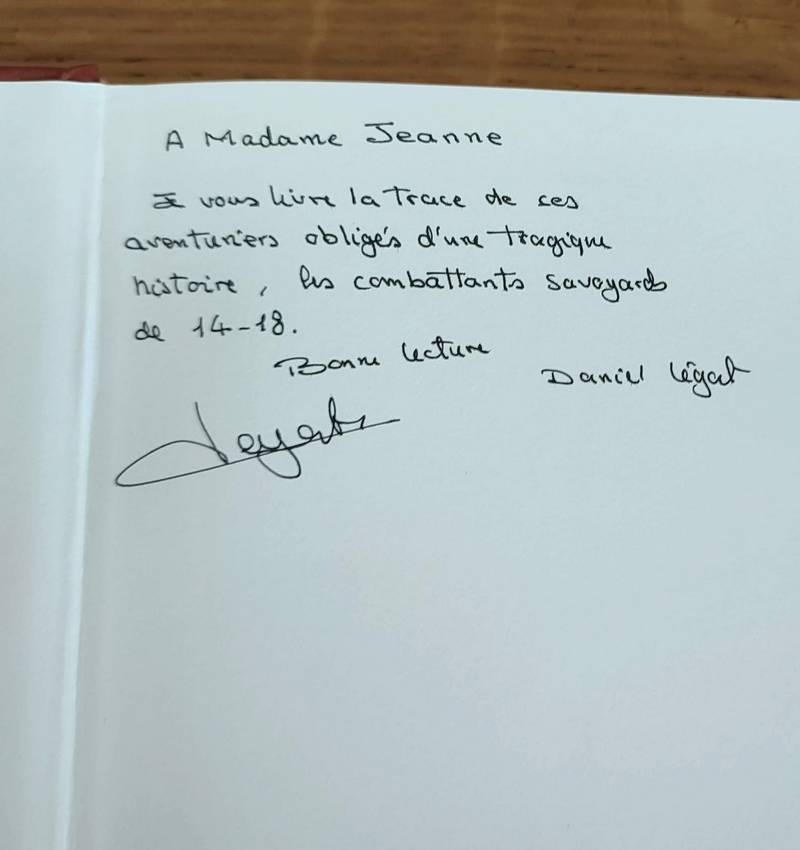 A Madame Jeanne
Je vous livre la trace de ces
aventuriers obligés d'une tragique
histoire, les combattants savoyards
de 14-18.
Bonne lecture
Daniel Légat
Legat